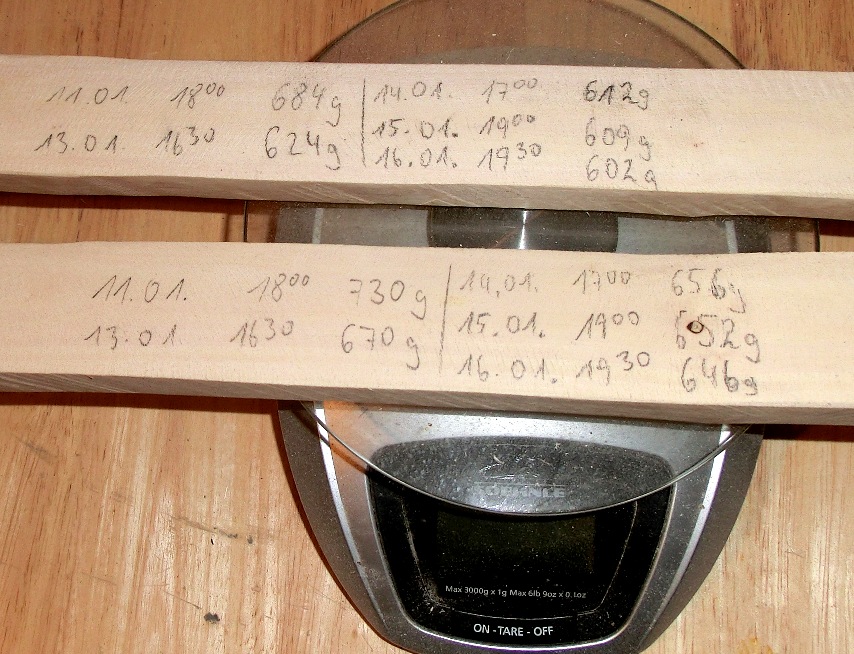 11.01. 18⁰⁰ 684g
13.01 16³⁰ 624g
14.01. 17⁰⁰ 612g
15.01. 19⁰⁰ 609g
16.01. 19³⁰ 602g
11.01. 18⁰⁰ 730g
13.01. 16³⁰ 670g
14.01. 17⁰⁰ 656g
15.01. 19⁰⁰ 652g
16.01. 19³⁰ 646g
SOEHNLE
Max 3000g x 1g Max 6lb 9oz x 0.1oz
ON - TARE - OFF